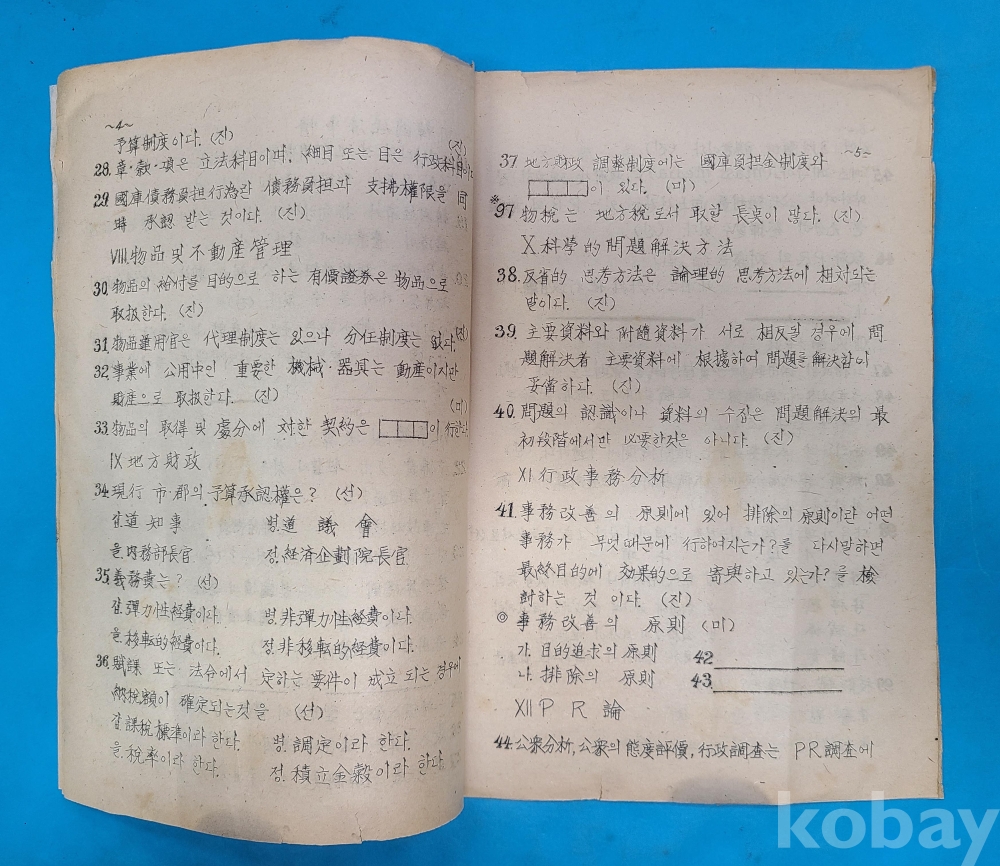 ~4~
予算制度이다. (진)
28. 章·款·項은 立法科目이며, 細目 또는 目은 行政科目이다. (진)
29. 國庫債務負担行為란 債務負担과 支拂權限을 同
時 承認 받는 것이다. (진)
VIII. 物品 및 不動産管理
30. 物品의 給付를 目的으로 하는 有價證券은 物品으로
取扱한다. (진)
31. 物品運用官은 代理制度는 있으나 分任制度는 없다. (진)
32. 事業에 公用中인 重要한 機械·器具는 動産이지만
財産으로 取扱한다. (진)
(미)
33. 物品의 取得 및 處分에 対한 契約은 □□□이 行한다.
IX 地方財政
34. 現行 市·郡의 予算承認權은? (선)
갑. 道知事 병. 道議會
을. 内務部長官 정. 経済企劃院長官
35. 義務費는? (선)
갑. 彈力性経費이다. 병. 非彈力性経費이다.
을. 移転的経費이다. 정. 非移転的経費이다.
36. 賦課 또는 法令에서 定하는 要件이 成立 되는 경우에
納稅額이 確定되는것을 (선)
갑. 課稅標準이라 한다. 병. 調定이라 한다.
을. 稅率이라 한다. 정. 積立金穀이라 한다
~5~
37 地方財政 調整制度에는 國庫負担金制度와
□□□□이 있다. (미)
※97 物稅는 地方稅로서 取할 長点이 많다. (진)
X 科學的問題解決方法
38. 反省的 思考方法은 論理的 思考方法에 相対되는
말이다. (진)
39. 主要資料와 附隨資料가 서로 相反될 경우에 問
題解決者 主要資料에 根據하여 問題를 解決함이
妥當하다. (진)
40. 問題의 認識이나 資料의 수집은 問題解決의 最
初段階에서만 必要한것은 아니다. (진)
XI 行政事務分析
41. 事務改善의 原則에 있어 排除의 原則이란 어떤
事務가 무엇때문에 行하여지는가?를 다시말하면
最終目的에 効果的으로 寄與하고 있는가?를 檢
討하는 것 이다. (진)
◎ 事務改善의 原則 (미)
가. 目的追求의 原則 42
나. 排除의 原則 43
XII P R 論
44. 公衆分析, 公衆의 態度評價, 行政調査는 PR調査에
kobay